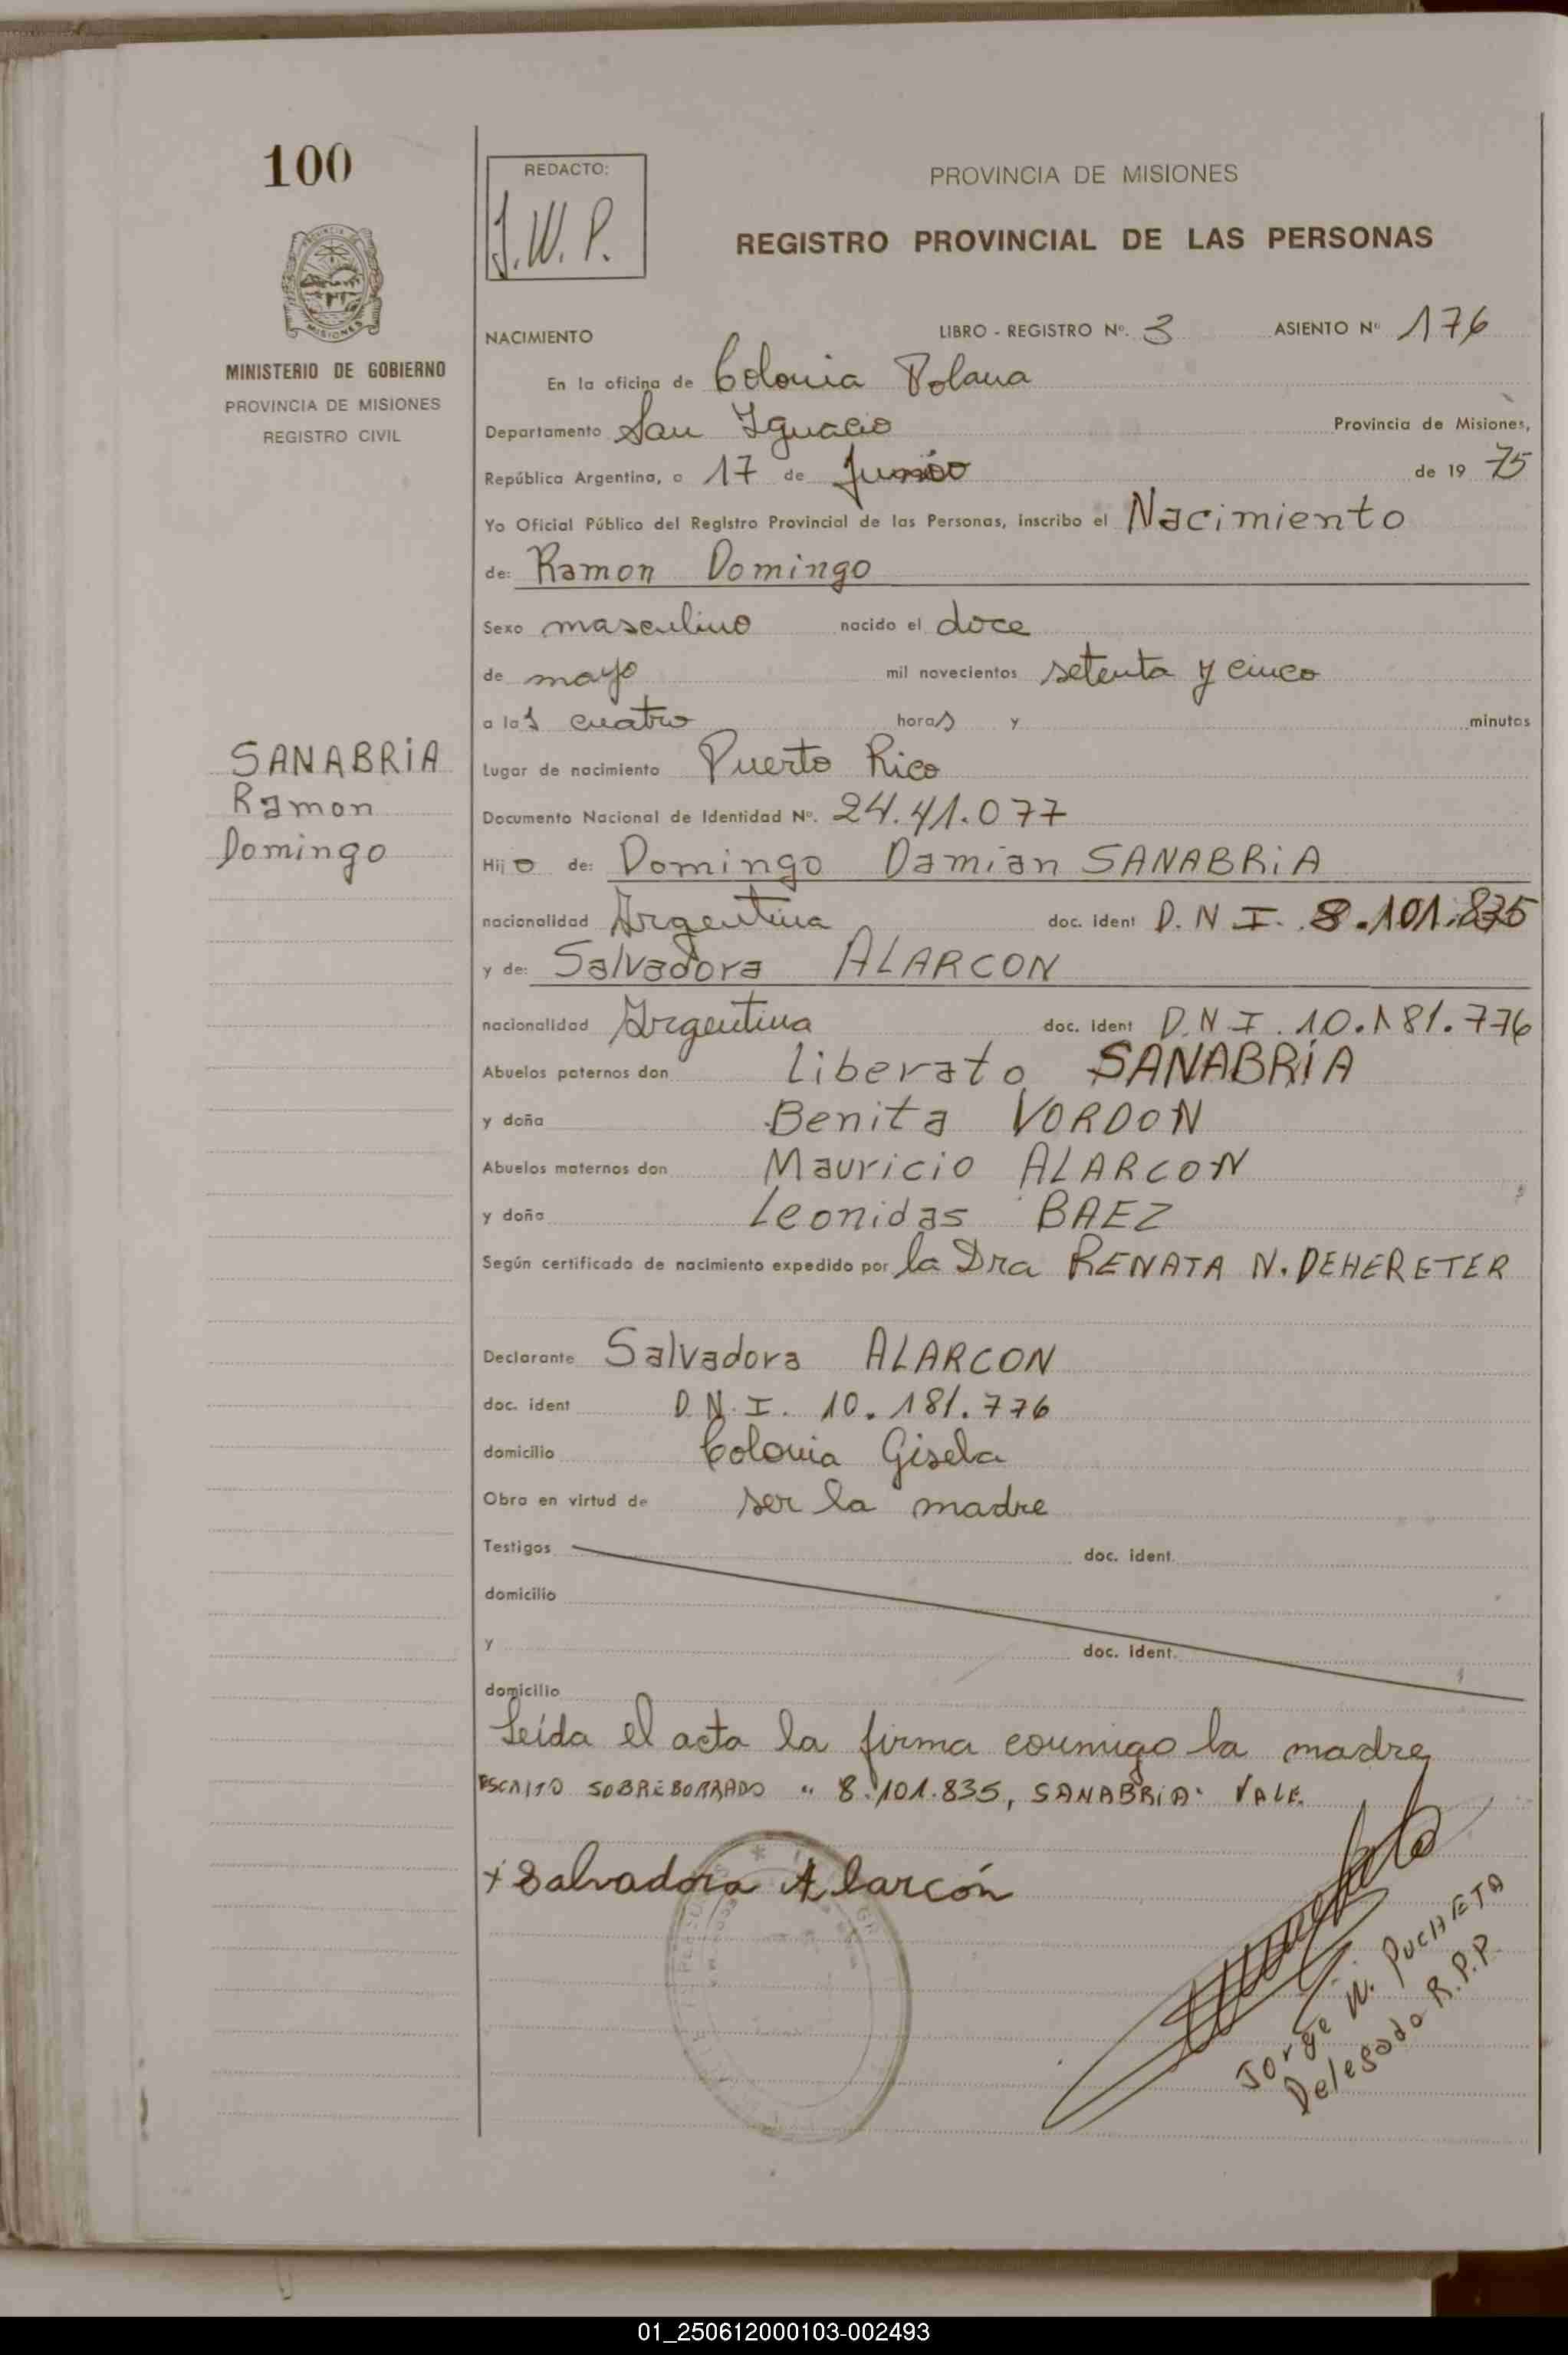 100
REDACTO:
J.W.P.
PROVINCIA DE MISIONES
REGISTRO PROVINCIAL DE LAS PERSONAS
MINISTERIO DE GOBIERNO
PROVINCIA DE MISIONES
REGISTRO CIVIL
NACIMIENTO LIBRO - REGISTRO Nº. 3 ASIENTO Nº 176
En la oficina de Colonia Polana
Departamento San Ignacio Provincia de Misiones,
República Argentina, a 17 de Junio de 19 75
Yo Oficial Público del Registro Provincial de las Personas, inscribo el Nacimiento
de: Ramon Domingo
Sexo masculino nacido el doce
de mayo mil novecientos setenta y cinco
a las cuatro horas y minutos
SANABRIA
Ramon
Domingo
Lugar de nacimiento Puerto Rico
Documento Nacional de Identidad Nº. 24.41.077
Hijo de: Domingo Damian SANABRIA
nacionalidad Argentina doc. ident D.N.I. 8.101.835
y de: Salvadora ALARCON
nacionalidad Argentina doc. ident D.N.I. 10.181.776
Abuelos paternos don Liberato SANABRIA
y doña Benita VORDON
Abuelos maternos don Mauricio ALARCON
y doña Leonidas BAEZ
Según certificado de nacimiento expedido por la Dra RENATA N. DEHERETER
Declarante Salvadora ALARCON
doc. ident D.N.I. 10.181.776
domicilio Colonia Gisela
Obra en virtud de ser la madre
Testigos doc. ident.
domicilio
y doc. ident.
domicilio
Leída el acta la firma conmigo la madre
ESCRITO SOBREBORRADO " 8.101.835, SANABRIA" VALE.
x Salvadora Alarcón
Jorge W. PUCHETA
Delegado R.P.P.
01_250612000103-002493